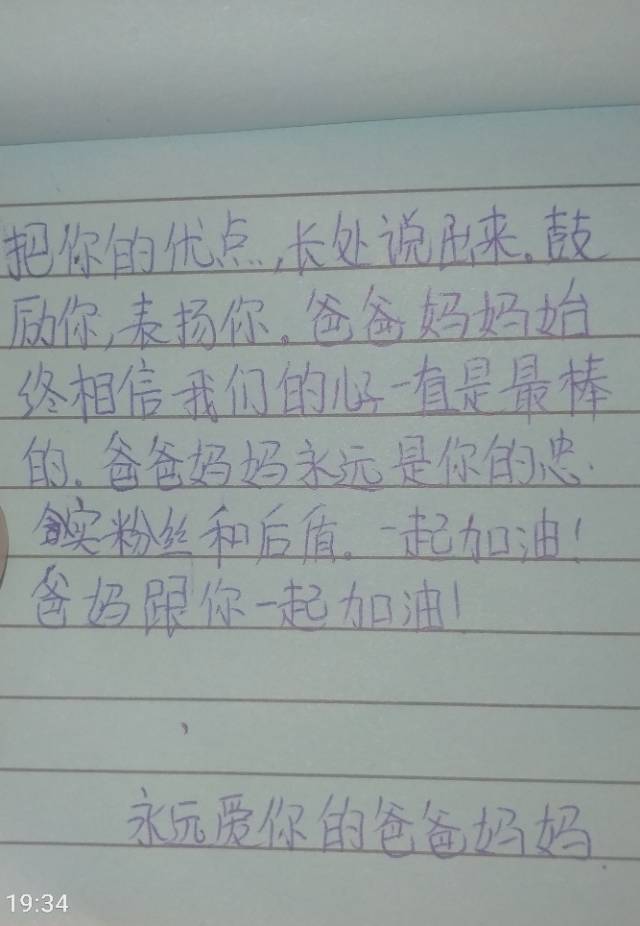 把你的优点,长处说出来。鼓
励你,表扬你。爸爸妈妈始
终相信我们的心一直是最棒
的。爸爸妈妈永远是你的忠
实粉丝和后盾。一起加油!
爸妈跟你一起加油!
永远爱你的爸爸妈妈
19:34